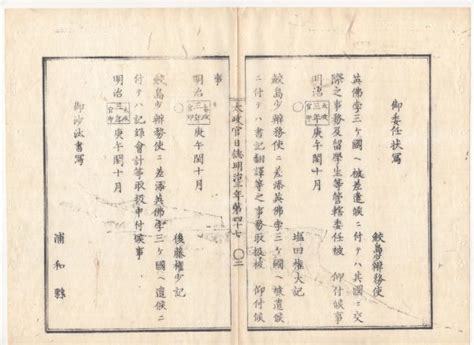 御委任状寫
鮫島少辨務使
英佛孛三ヶ國ヘ被差遣候ニ付テハ其國ニ交
際之事務及留學生等管轄委任被 仰付候事
明治三年庚午閏十月
○
塩田權大記
鮫島少辨務使ニ差添英佛孛三ヶ國ヘ被遣候
ニ付テハ書記翻譯等之事務取扱被 仰付候
太政官日誌明治三年第四十七 ○二
事
明治三年庚午閏十月
○
後藤權少記
鮫島少辨務使ニ差添英佛孛三ヶ國ヘ遣候ニ
付テハ記録會計等取扱申付候事
明治三年庚午閏十月
御沙汰書寫
浦和縣